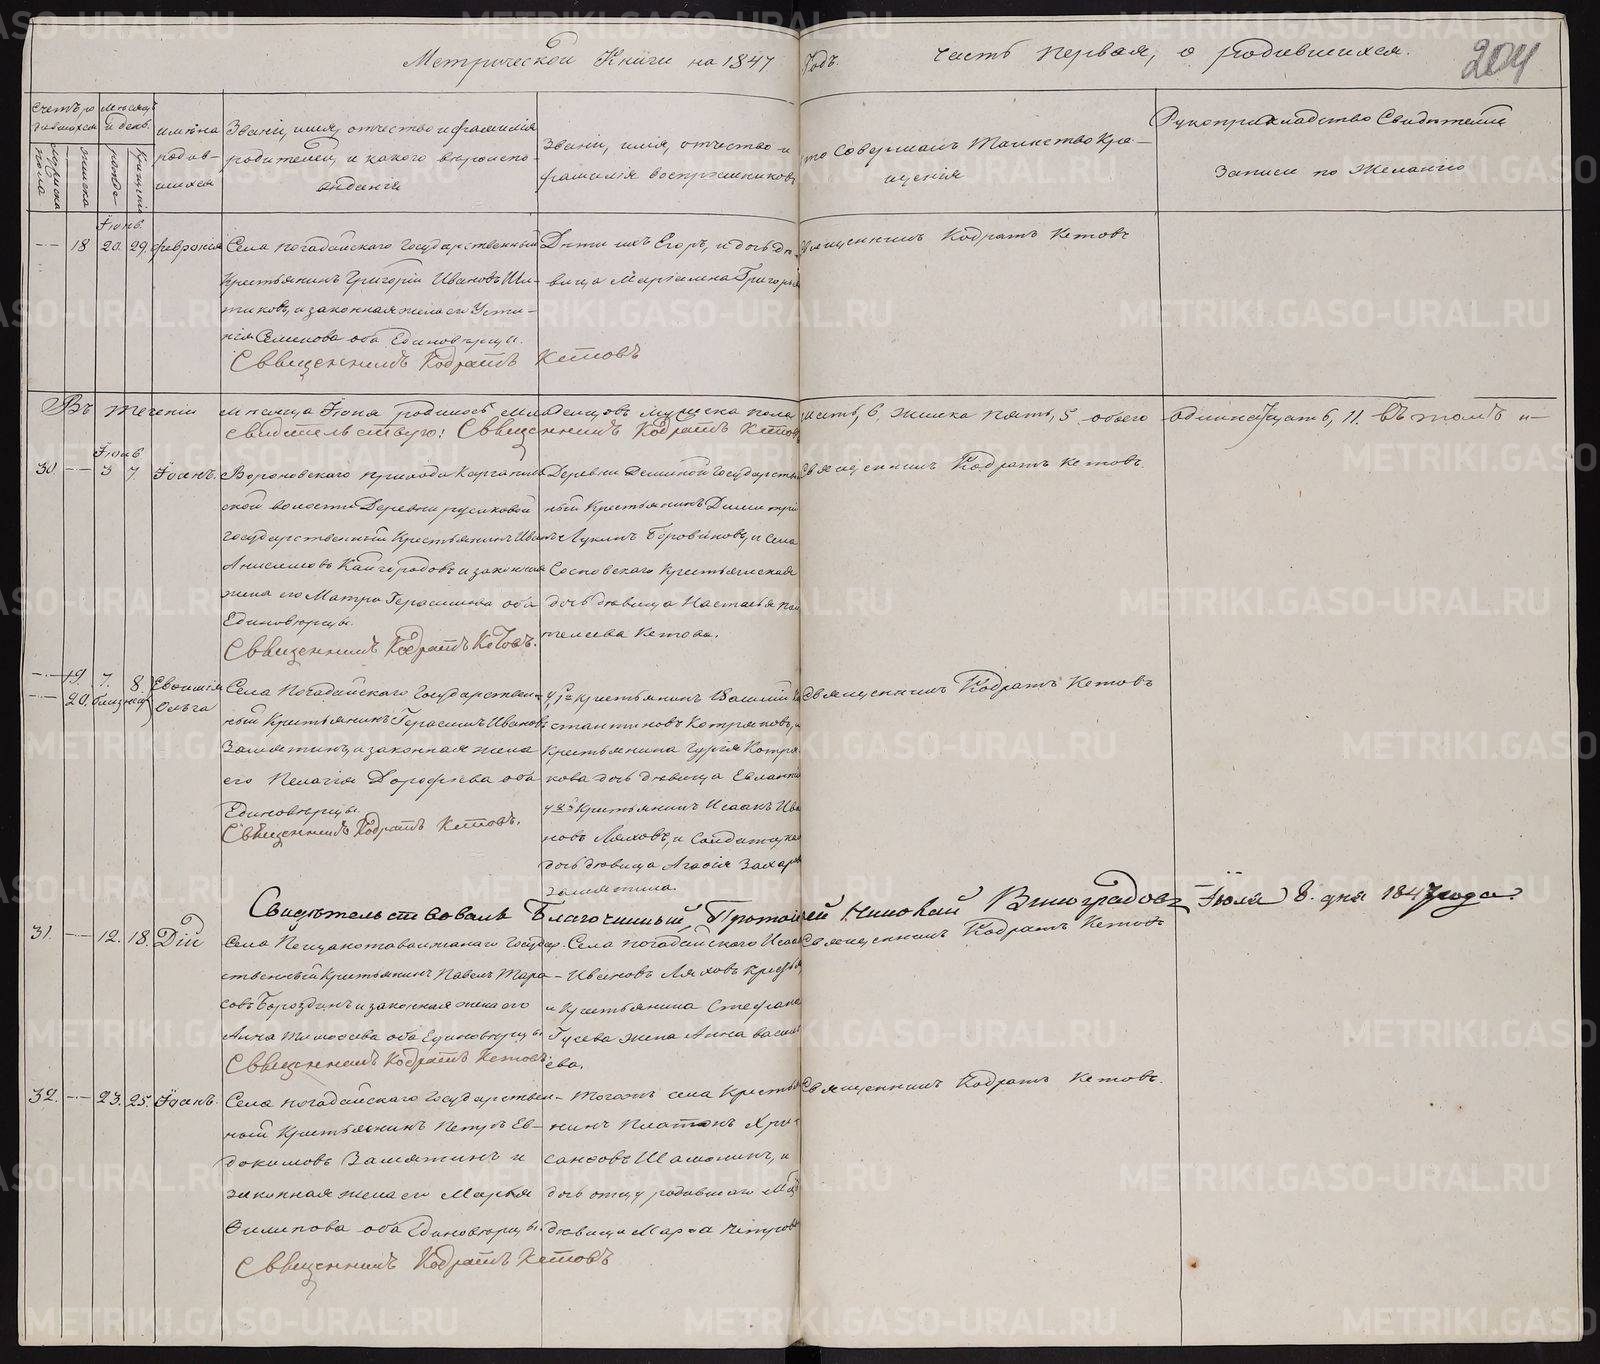 Метрической Книги на 1847 Годъ.
часть первая, о родившихся.
204
Счетъ родившихся
мужеска пола
женска
Месяцъ и день
рожде
Крещенiя
имяна родившихся
Званiе, имя, отчество и фамилiя
родителей, и какого вероиспо-
веданiя
Званiе, имя, отчество и
фамилiя воспрiемниковъ
кто совершалъ Таинство Кре-
щенiя
Рукоприкладство Свидетелей
Записи по желанiю
Iюнь
18 20. 29. Феvронiя
Села погадайскаго Государственный
Крестьянинъ Григорiй Ивановъ
и законная жена его Усти-
нiя Семенова оба Единоверцы.
Священникъ Кодратъ Кетовъ
Дети ихъ Егоръ, и дочь де-
вица Григорья
Священникъ Кодратъ Кетовъ
Въ теченiи месяца Iюня родилось младенцовъ мужеска пола шесть, 6, женска пять, 5. обоего одиннадцать, 11. въ томъ и
Свидетельствую: Священникъ Кодратъ Кетовъ
Iюль
30 3 7. Iоаннъ.
Вороновскаго прихода
ской волости Деревни русаковой
государственный Крестьянинъ Иванъ
Анисимовъ Кайгородовъ и законная
жена его Матрона Герасимова оба
Единоверцы.
Священникъ Кодратъ Кетовъ.
Деревни Государствен
ный Крестьянинъ Димитрiй
Лукинъ Боровиковъ, и Села
Сосновскаго Крестьянская
дочь девица Настасья пан
телеева Кетова.
Священникъ Кодратъ Кетовъ.
19. 7. 8. Евфимiя
20. близнецы Ольга
Села Погадайскаго Государствен-
ный Крестьянинъ Герасимъ Ивановъ
Замятинъ, и законная жена
его Пелагiя Дорофеева оба
Единоверцы.
Священникъ Кодратъ Кетовъ.
у 1й крестьянинъ Василiй Кон
стантиновъ Котряковъ, и
крестьянина Гурiя Котря
кова дочь девица Евлампiя
у 2й Крестьянинъ Исаакъ Ива
новъ Ляховъ, и Солдатская
дочь девица Агафiя Захаро
Замятина.
Священникъ Кодратъ Кетовъ
Свидетельствовалъ Благочинный, Протоiерей Николай Виноградовъ Iюля 8. дня 1847 года.
31. 12. 18. Дiй
Села Государ-
ственный Крестьянинъ Павелъ Тара
совъ Бороздинъ и законная жена его
Анна Тимофеева оба Единоверцы
Священникъ Кодратъ Кетовъ.
Села погадайскаго Исаакъ
Ивановъ Ляховъ Крестья
и Крестьянина Стефана
Гусева жена Анна Василь
ева.
Священникъ Кодратъ Кетовъ
32. 23. 25. Iоаннъ.
Села погадайскаго Государствен-
ный Крестьянинъ Петръ Ев-
докимовъ Замятинъ и
законная жена его Марья
Филипова оба Единоверцы.
Священникъ Кодратъ Кетовъ
Тогожъ села Крестья
нинъ Платонъ Хри-
санфовъ Шамонинъ, и
дочь отцу родившаго
девица Марфа Петрова
Священникъ Кодратъ Кетовъ.
METRIKI.GASO-URAL.RU